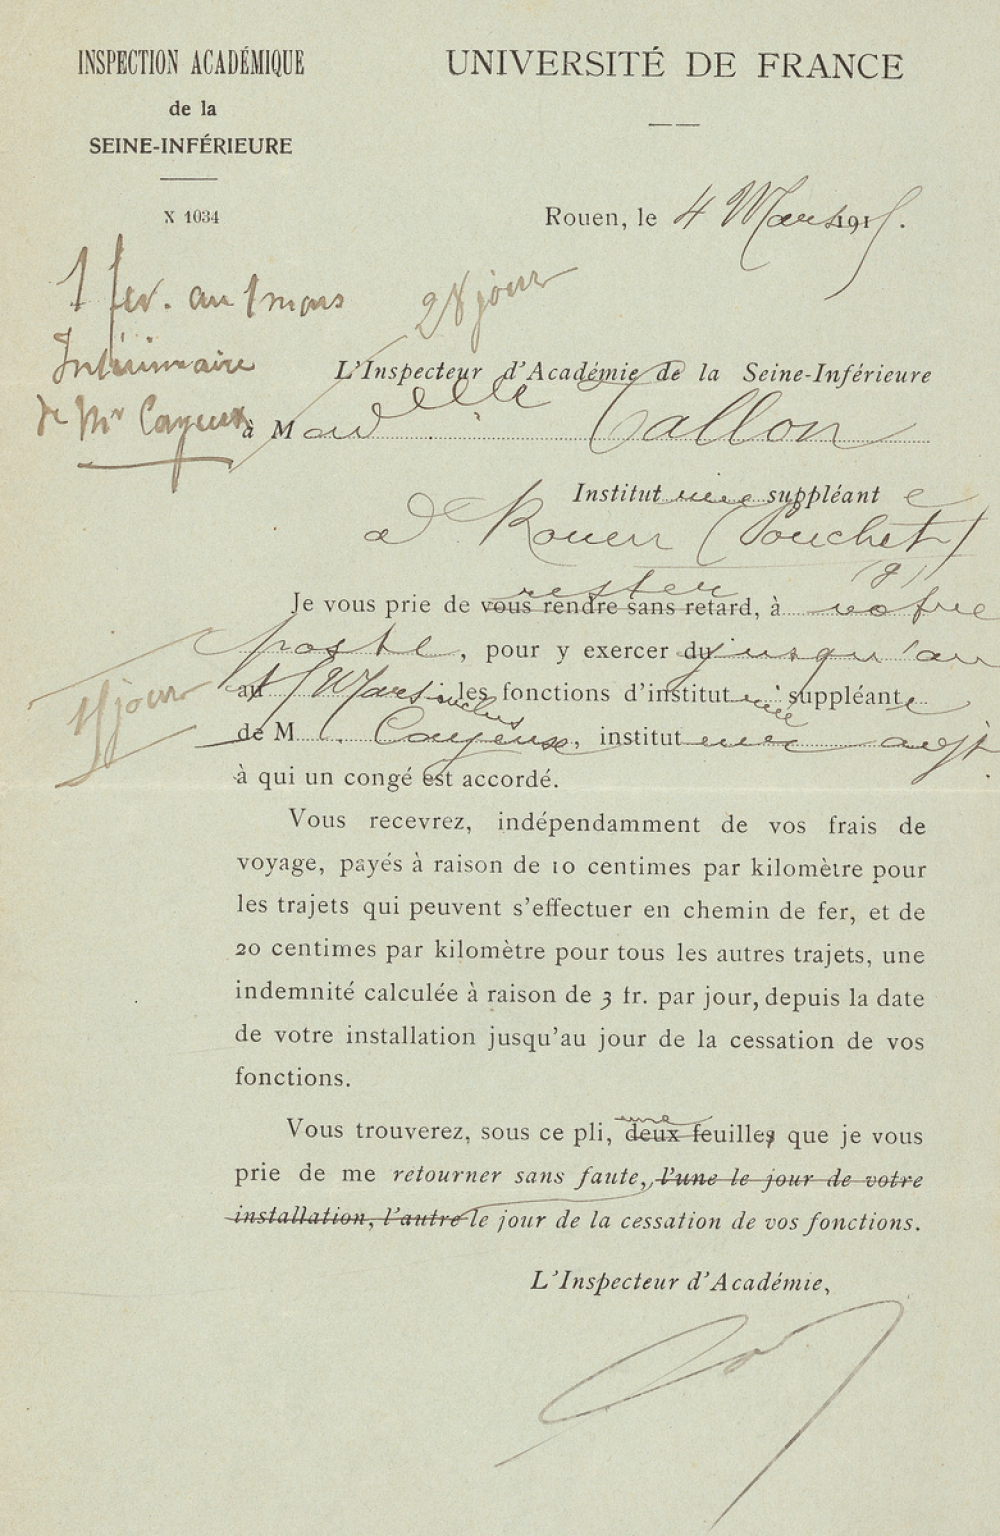 INSPECTION ACADÉMIQUE
de la
SEINE-INFÉRIEURE
X 1034
UNIVERSITÉ DE FRANCE
Rouen, le 4 Mars 191
1 fev. au 1 mars
28 jour
Intérimaire
de Mr Cayeux
L'Inspecteur d'Académie de la Seine-Inférieure
à Mademoiselle Tallon
Institutrice suppléante
à Rouen (Pouchet)
rester
Je vous prie de vous rendre sans retard, à votre
poste, pour y exercer du jusqu'au
au Mars inclus les fonctions d'institutrice suppléante
jour
de M. Cayeux, institut
à qui un congé est accordé.
Vous recevrez, indépendamment de vos frais de
voyage, payés à raison de 10 centimes par kilomètre pour
les trajets qui peuvent s'effectuer en chemin de fer, et de
20 centimes par kilomètre pour tous les autres trajets, une
indemnité calculée à raison de 3 fr. par jour, depuis la date
de votre installation jusqu'au jour de la cessation de vos
fonctions.
une
Vous trouverez, sous ce pli, deux feuilles que je vous
prie de me retourner sans faute, l'une le jour de votre
installation, l'autre le jour de la cessation de vos fonctions.
L'Inspecteur d'Académie,